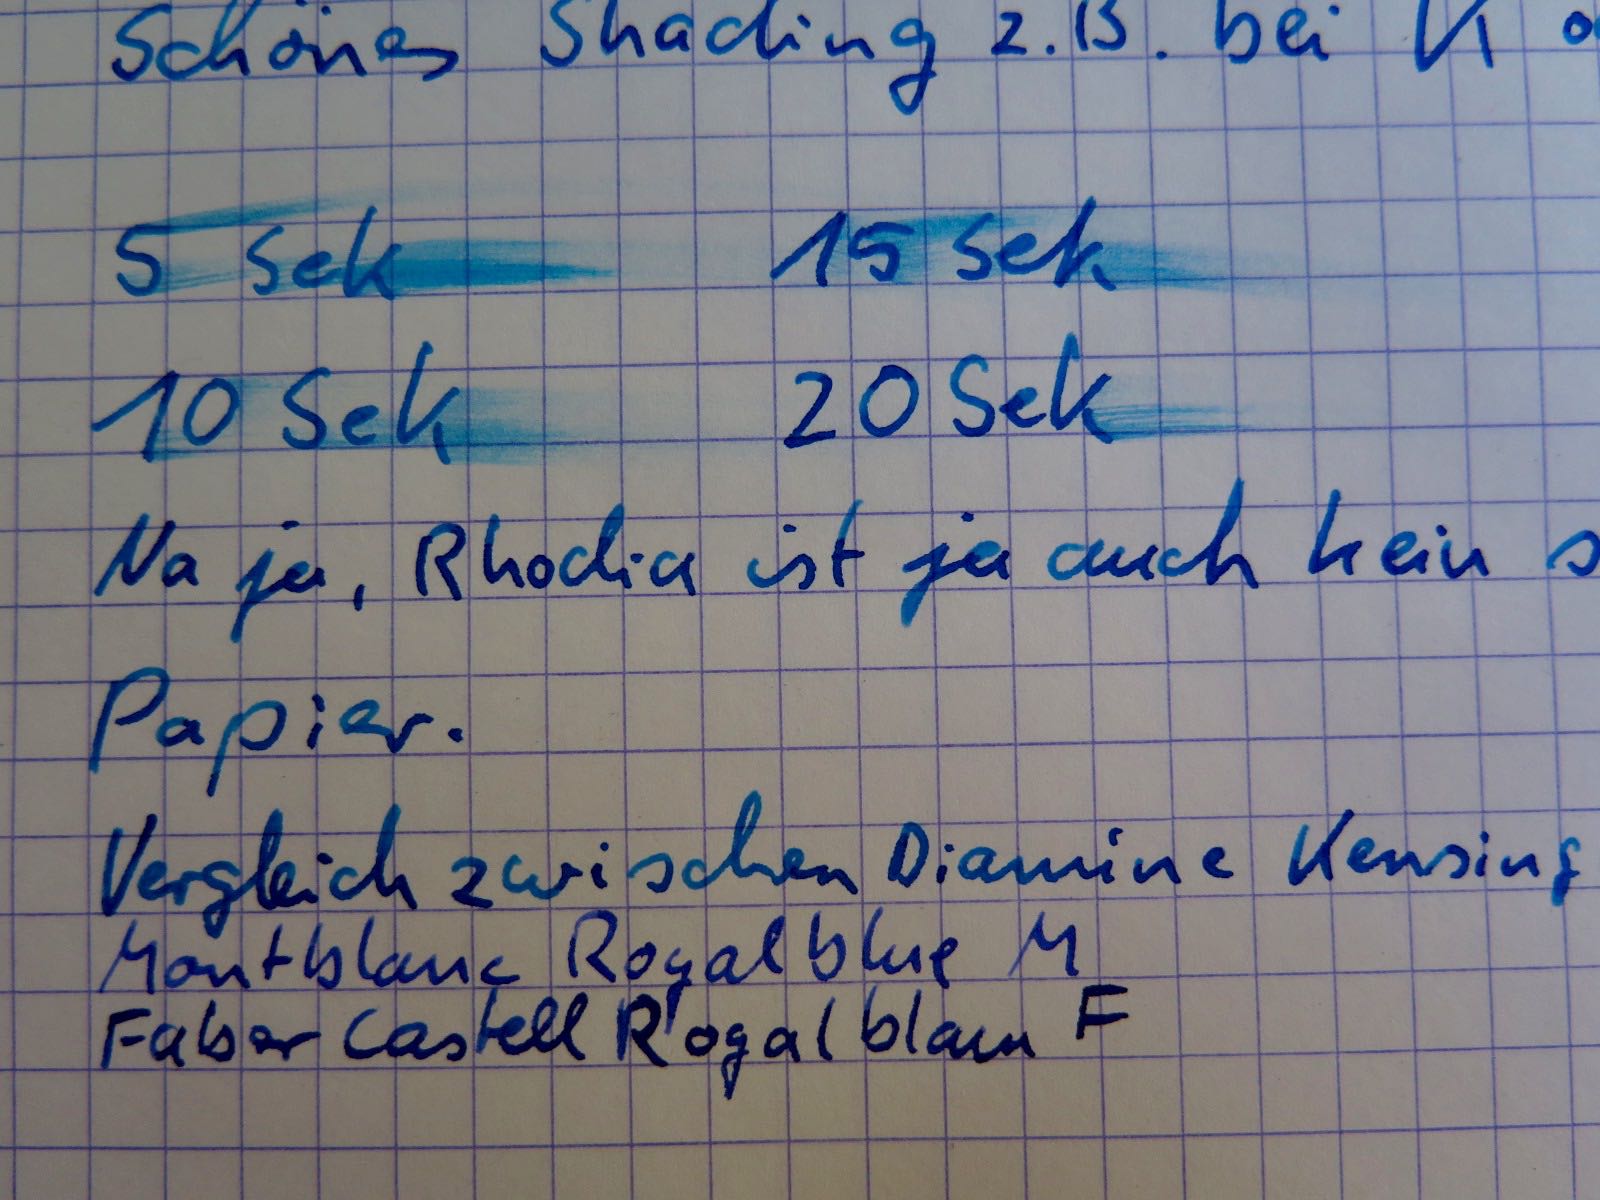 Schönes Shading z.B. bei K
5 Sek 15 Sek
10 Sek 20 Sek
Na ja, Rhodia ist ja auch kein s
Papier.
Vergleich zwischen Diamine Kensing
Montblanc Royalblue M
Faber Castell Royalblau F